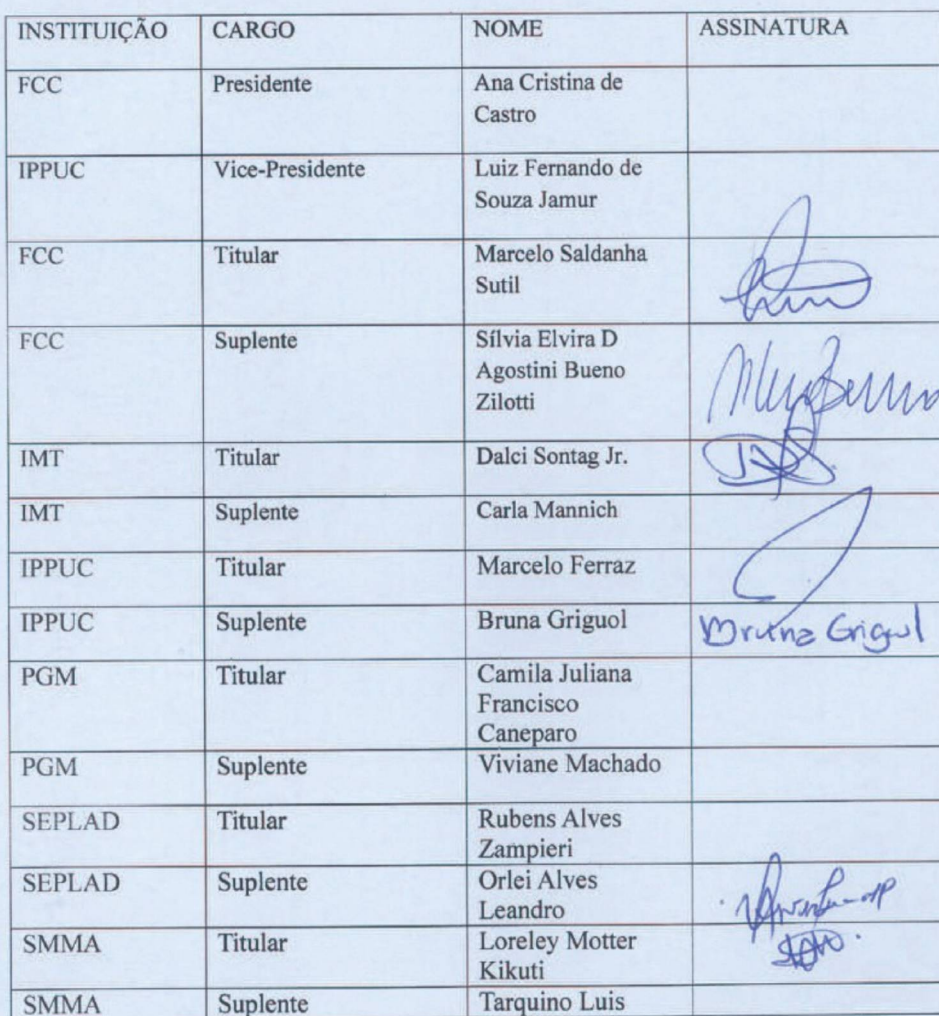 INSTITUIÇÃO CARGO NOME ASSINATURA
FCC Presidente Ana Cristina de
Castro
IPPUC Vice-Presidente Luiz Fernando de
Souza Jamur
FCC Titular Marcelo Saldanha
Sutil
FCC Suplente Sílvia Elvira D
Agostini Bueno
Zilotti
IMT Titular Dalci Sontag Jr.
IMT Suplente Carla Mannich
IPPUC Titular Marcelo Ferraz
IPPUC Suplente Bruna Griguol Bruna Griguol
PGM Titular Camila Juliana
Francisco
Caneparo
PGM Suplente Viviane Machado
SEPLAD Titular Rubens Alves
Zampieri
SEPLAD Suplente Orlei Alves
Leandro
SMMA Titular Loreley Motter
Kikuti
SMMA Suplente Tarquino Luis